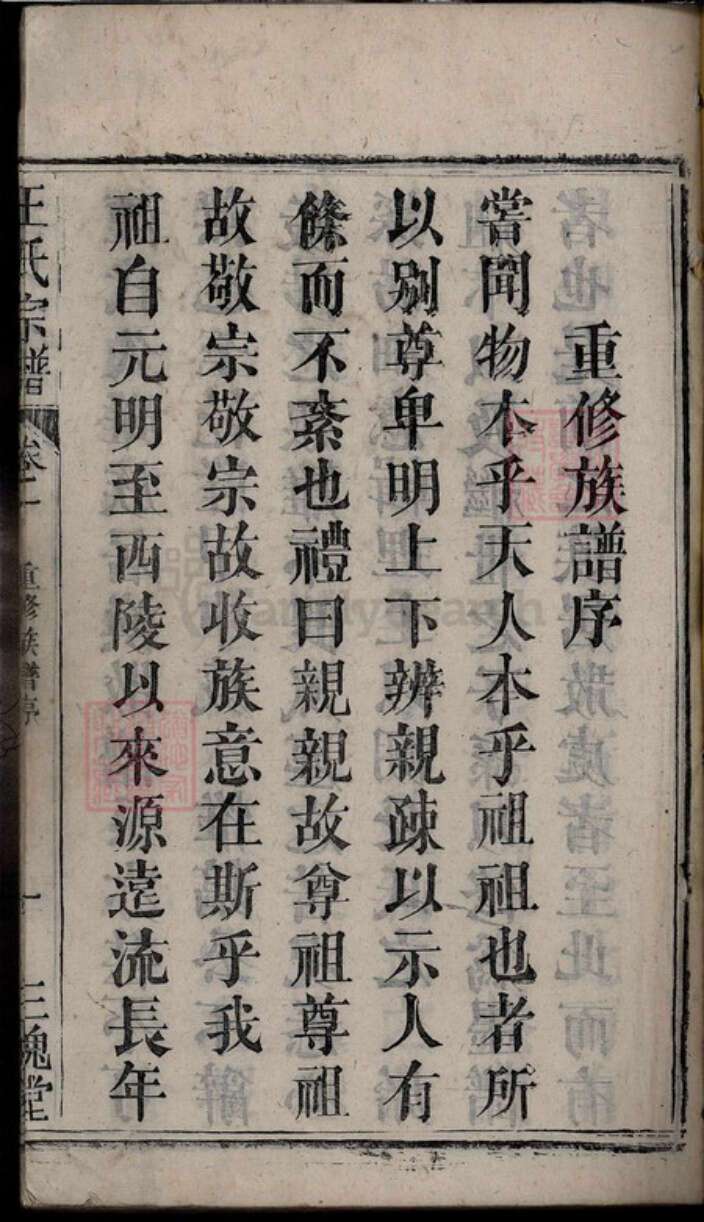 重修族譜序
嘗聞物本乎天人本乎祖祖也者所
以别尊卑明上下辨親疎以示人有
條而不紊也禮曰親親故尊祖尊祖
故敬宗敬宗故收族意在斯乎我
祖自元明至西陵以來源逺流長年
王氏宗譜
卷一
重修族譜序
一
三槐堂